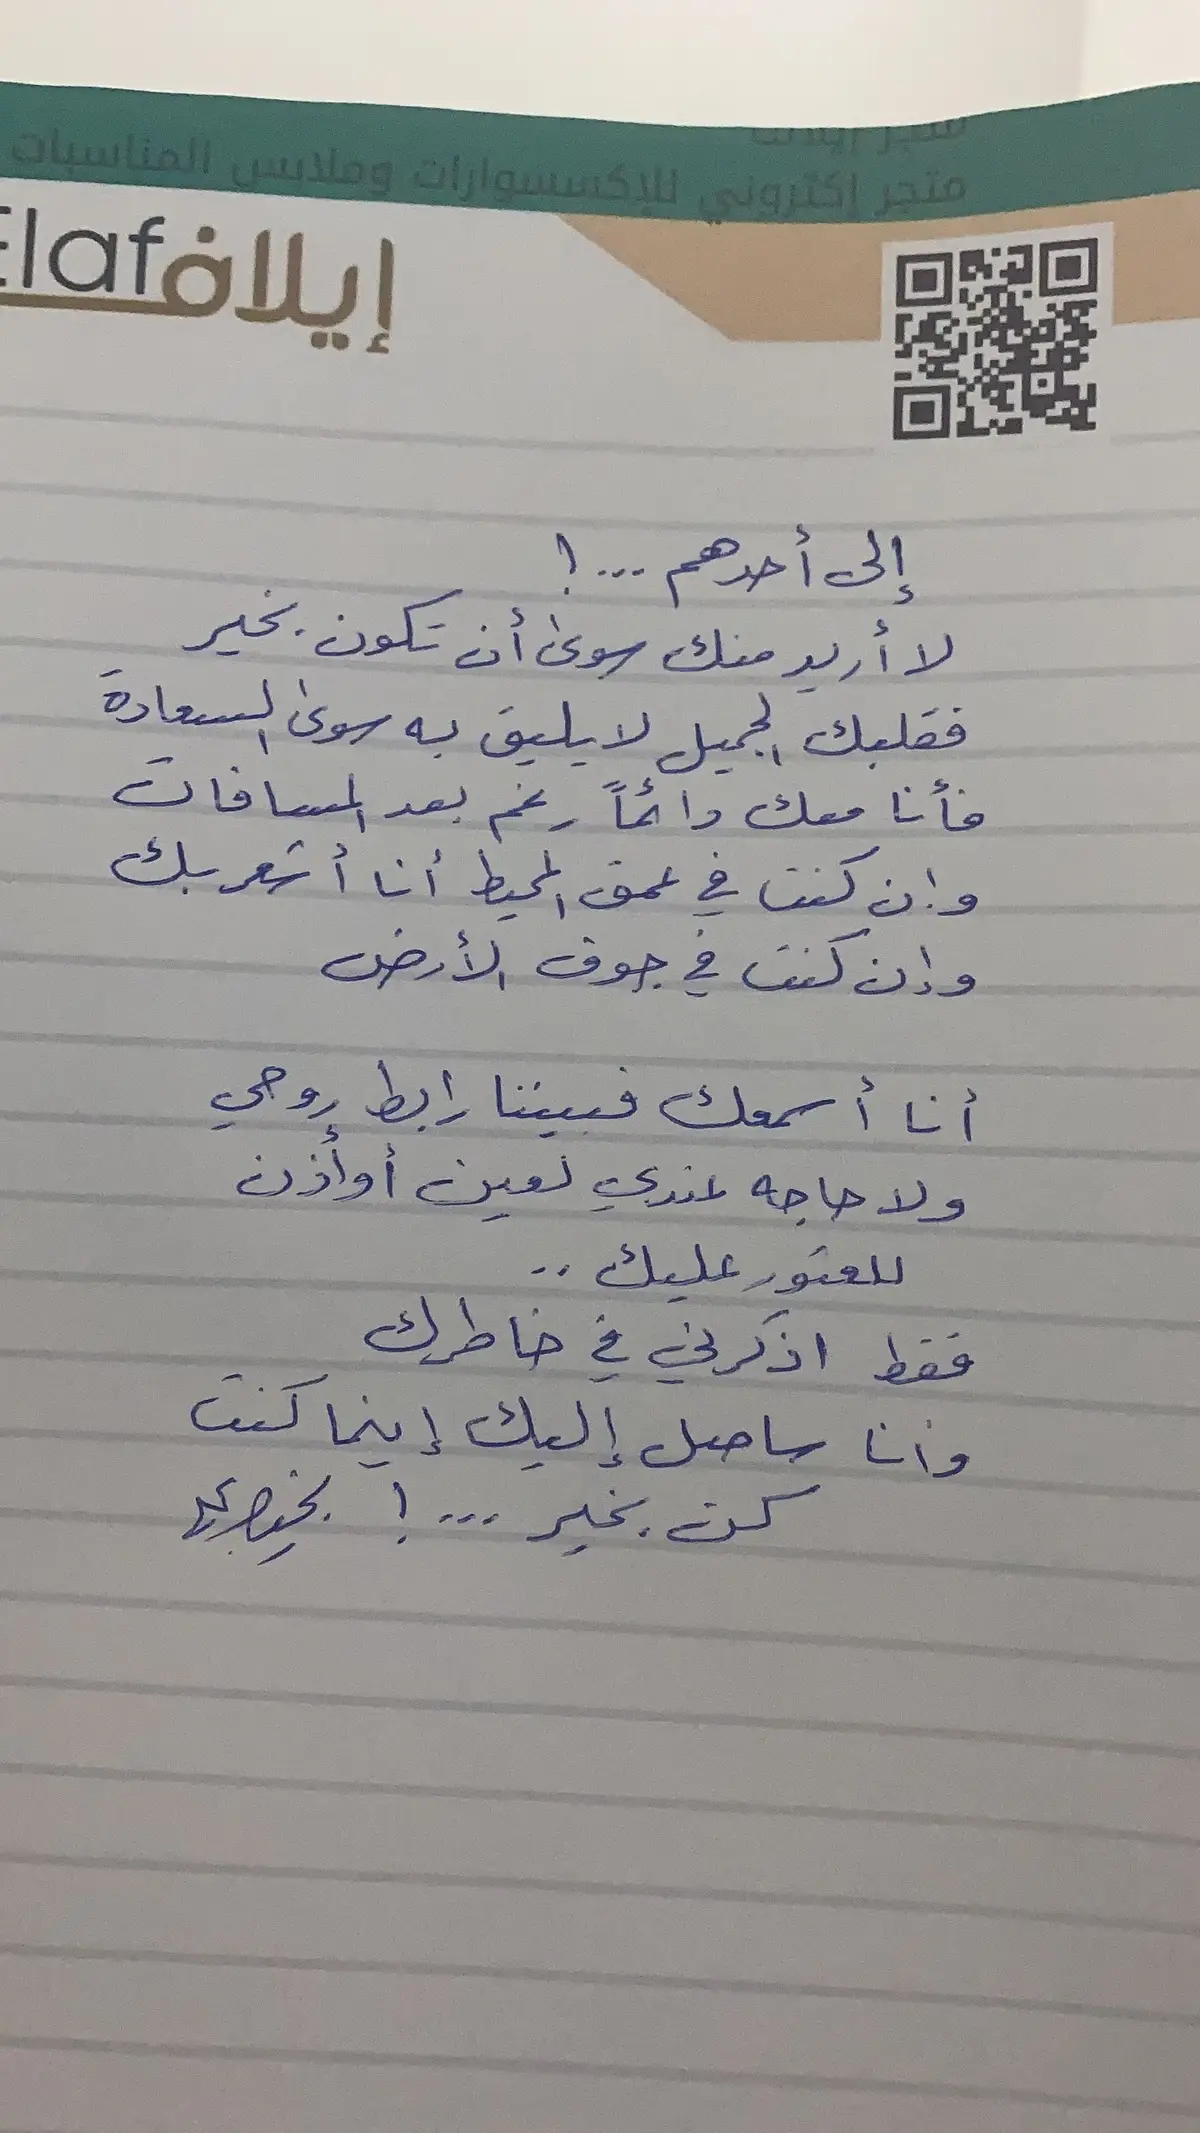 متجر إيلاف
متجر إكتروني للإكسسوارات وملابس المناسبات
Elaf إيلاف
إلى أحدهم ...!
لا أريد منك سوى أن تكون بخير
فقلبك الجميل لا يليق به سوى السعادة
فأنا معك دائماً رغم بعد المسافات
وإن كنت في عمق المحيط أنا أشعر بك
وإن كنت في جوف الأرض
أنا أسمعك فبيننا رابط روحي
ولا حاجه عندي لعين أو أذن
للعثور عليك ..
فقط اذكرني في خاطرك
وأنا ساصل إليك إينما كنت
كن بخير ...!